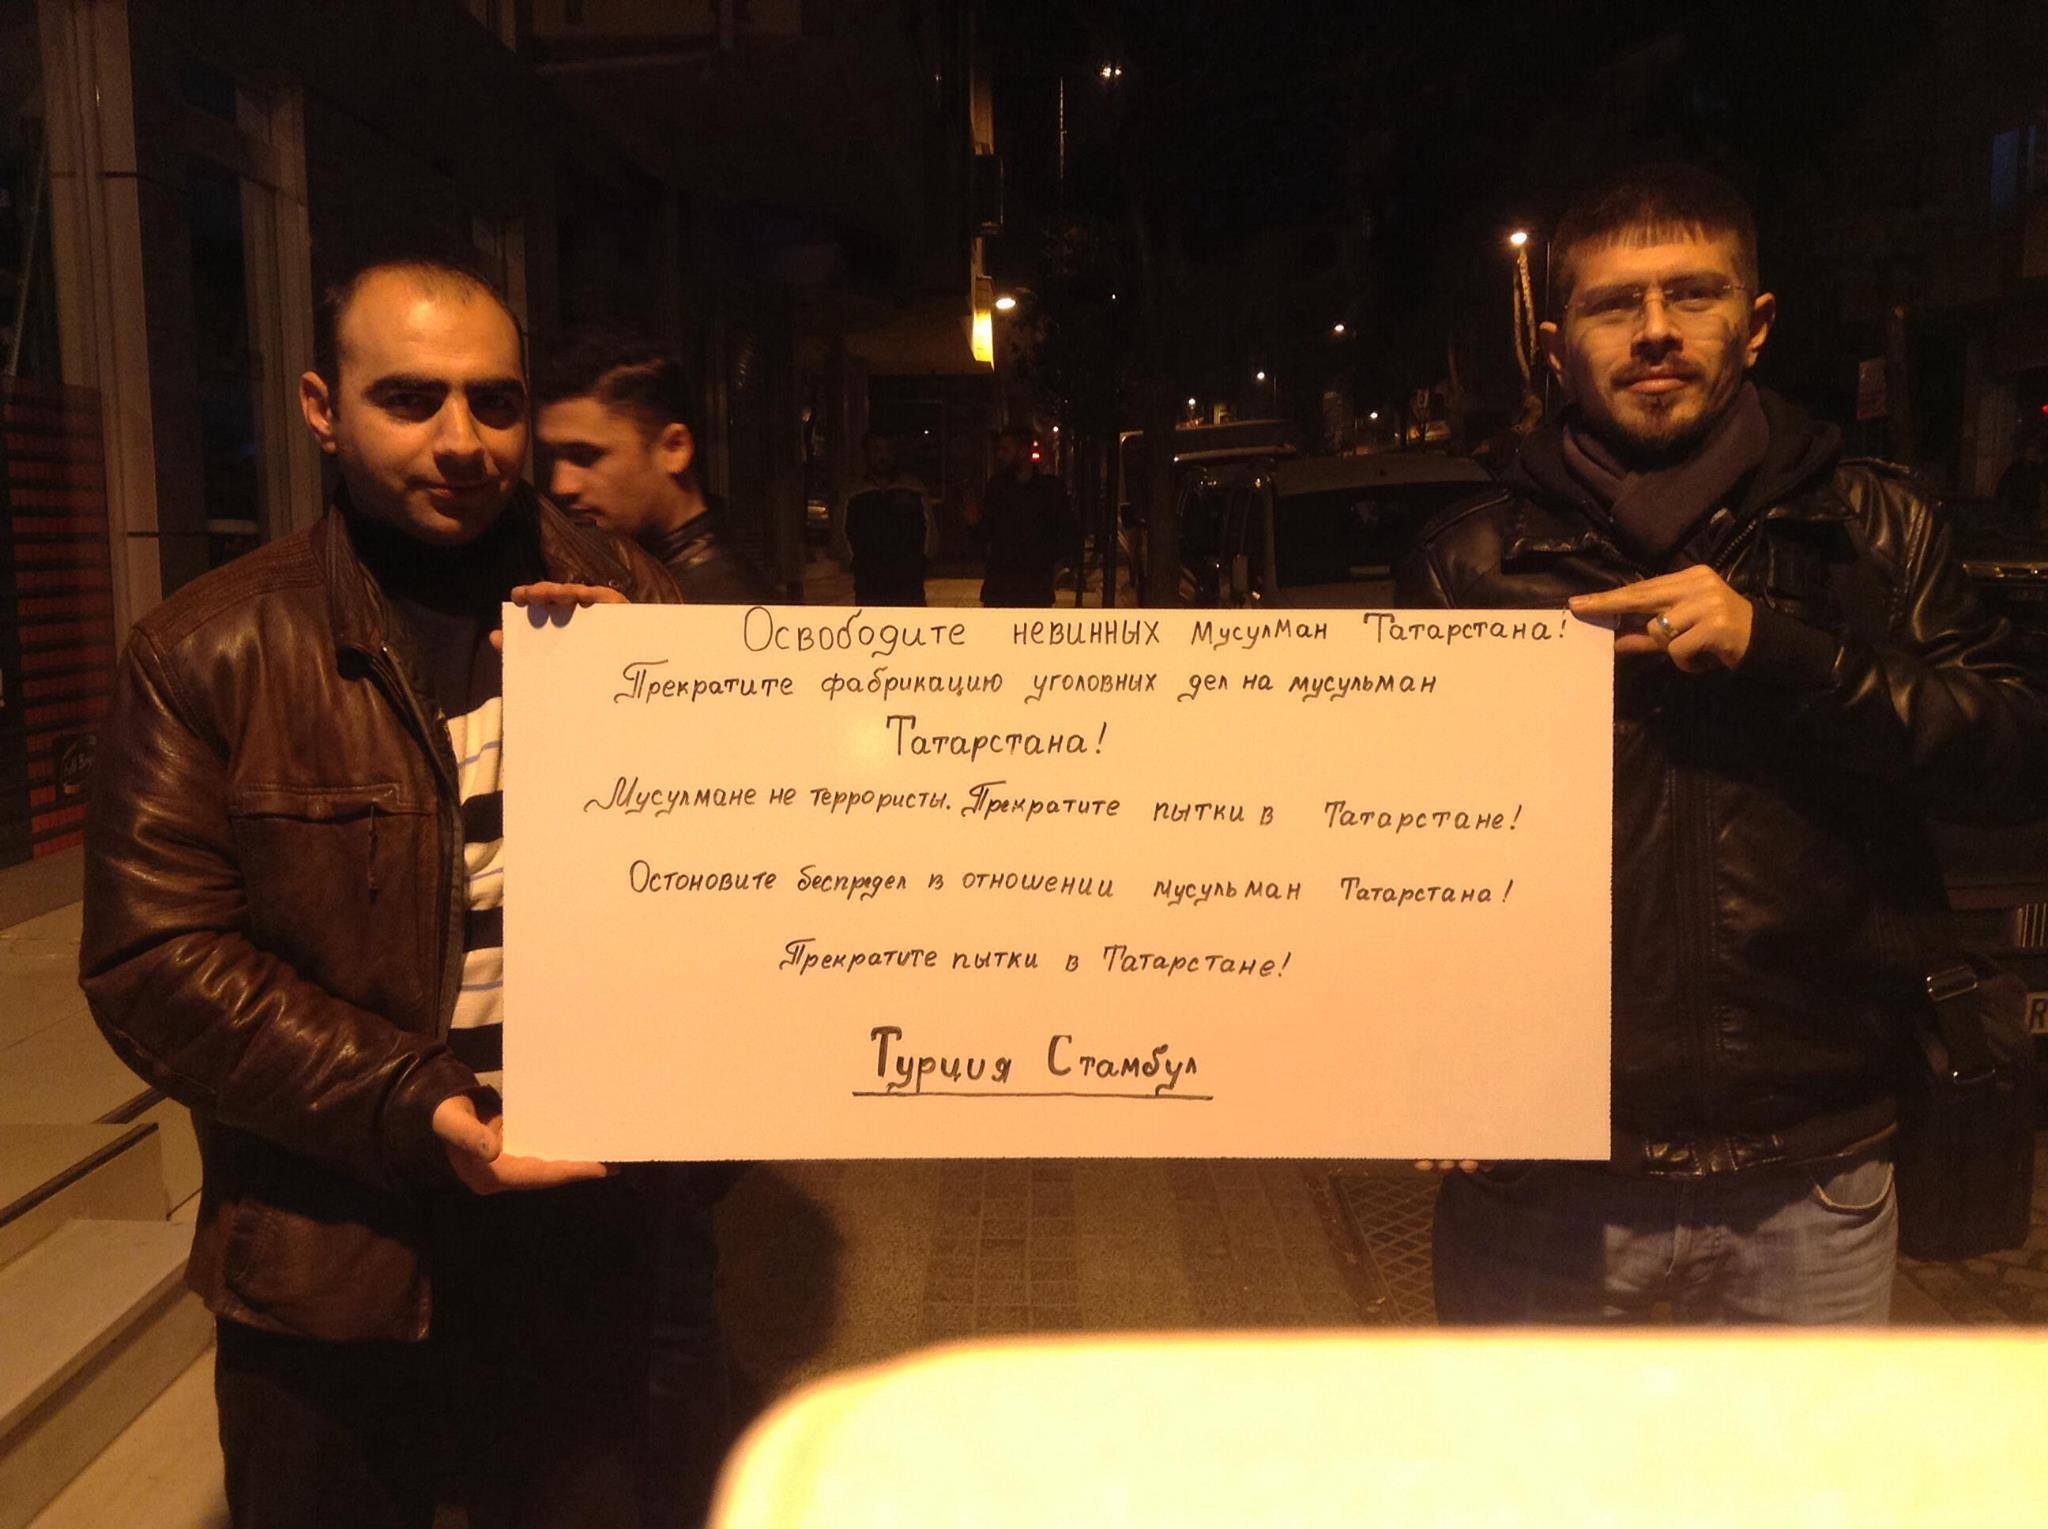 Освободите невинных мусулман Татарстана!
Прекратите фабрикацию уголовных дел на мусульман
Татарстана!
Мусулмане не террористы. Прекратите пытки в Татарстане!
Остоновите беспредел в отношении мусульман Татарстана!
Прекратите пытки в Татарстане!
Турция Стамбул
R